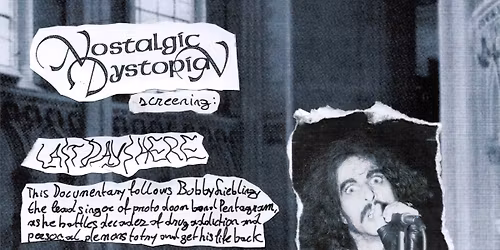 Nostalgic
Dystopia
screening:
LAST DAYS HERE
This Documentary follows Bobby Liebling
the lead singer of proto doom band Pentagram,
as he battles decades of drug addiction and
personal demons to try and get his life back